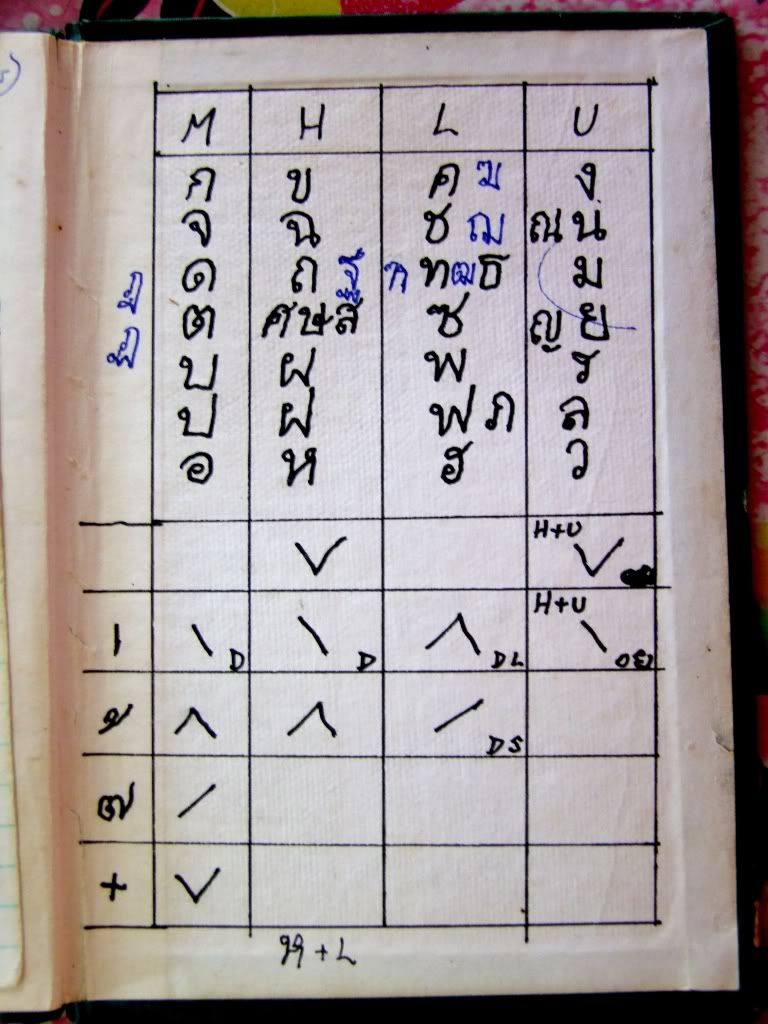 M H L U
ก ข ค ฆ ง
จ ฉ ช ฌ ณ น
ด ถ ฐ ท ฒ ธ ม
ต ศ ษ ส ซ ญ ย
บ ผ พ ร
ป ฝ ฟ ภ ล
อ ห ฮ ว
H+U
H+U
D D DL
DS
+
+ L